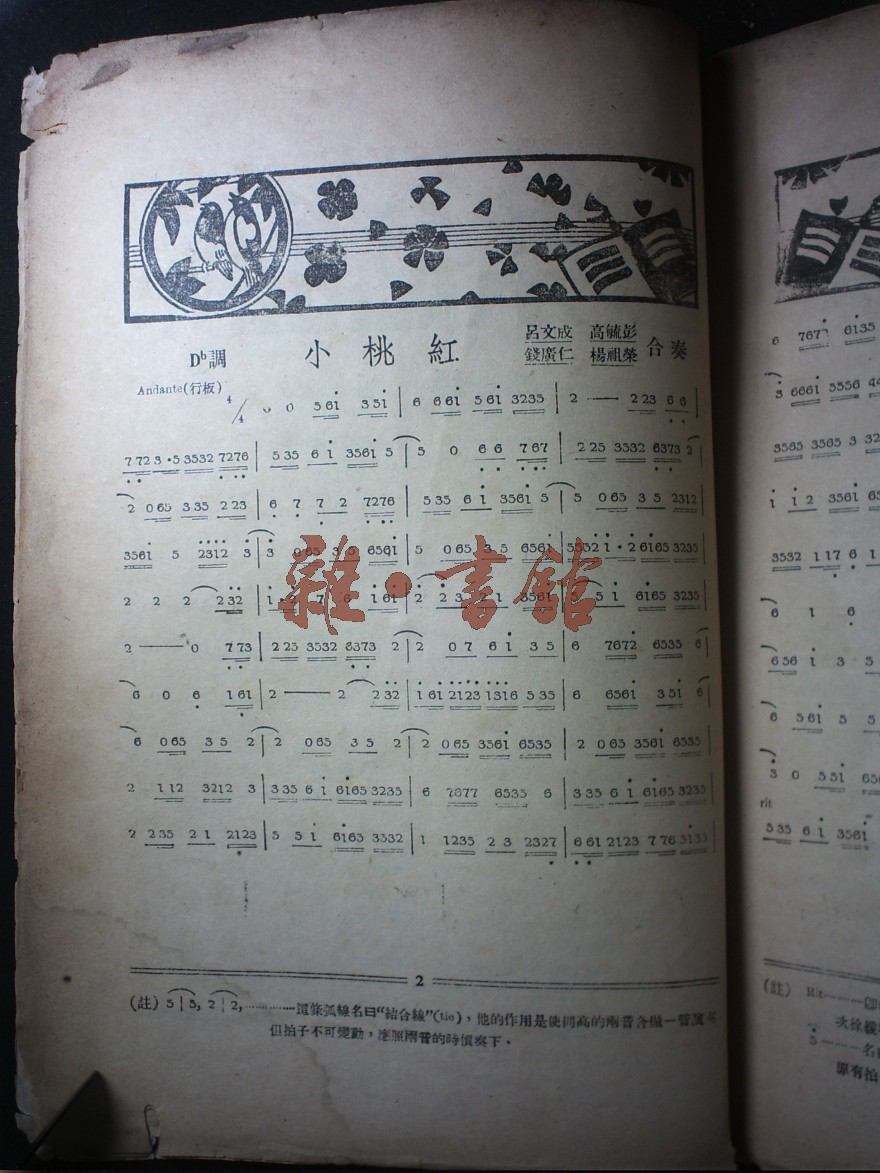 Dᵇ調
小桃紅
呂文成 高毓彭
錢廣仁 楊祖榮
合奏
Andante(行板) 4/4
0 0 5 6i 3 5i | 6 6 6i 5 6i 3235 | 2 —— 2 23 6 6 |
7 72 3 · 5 3532 7276 | 5 35 6 i 356i 5 | 5 0 6 6 7 67 | 2 25 3532 6373 2 |
2 0 65 3 35 2 23 | 6 7 7 2 7276 | 5 35 6 i 356i 5 | 5 0 65 3 5 2312 |
356i 5 2312 3 | 3 0 65 3 5 656i | 5 0 65 3 5 656i | 5532 1 · 2 6165 3235 |
2 2 2 2 32 | 6165 3235 |
2 —— 0 7 73 | 2 25 3532 6373 2 | 2 0 7 6 i 3 5 | 6 7672 6535 6 |
6 0 6 1 61 | 2 —— 2 2 32 | 1 61 2123 1316 5 35 | 6 656i 3 5i 6 |
6 0 65 3 5 2 | 2 0 65 3 5 2 | 2 0 65 356i 6535 | 2 0 65 356i 6535 |
2 1 12 3212 3 | 3 35 6 i 6165 3235 | 6 7677 6535 6 | 3 35 6 i 6165 3235 |
2 2 35 2 1 2123 | 5 5 i 6165 3532 | 1 1235 2 3 2327 | 6 61 2123 7 76 5135 |
雜·書館
2
(註) 5 | 5, 2 | 2, ············這條弧線名曰“結合線”(tie)，他的作用是使同高的兩音合做一音演奏
但拍子不可變動，應照兩音的時價奏下。
6 7677 6135
3 6661 5556 44
3565 3565 3 32
i i 2 3561 65
3532 1 17 6 1
6 1 6
6 56 i 3 5
6 5 6i 5 5
3 0 5 5i
rit
5 35 6 i 3561
(註) Rit———
次徐緩
5———名
原有拍